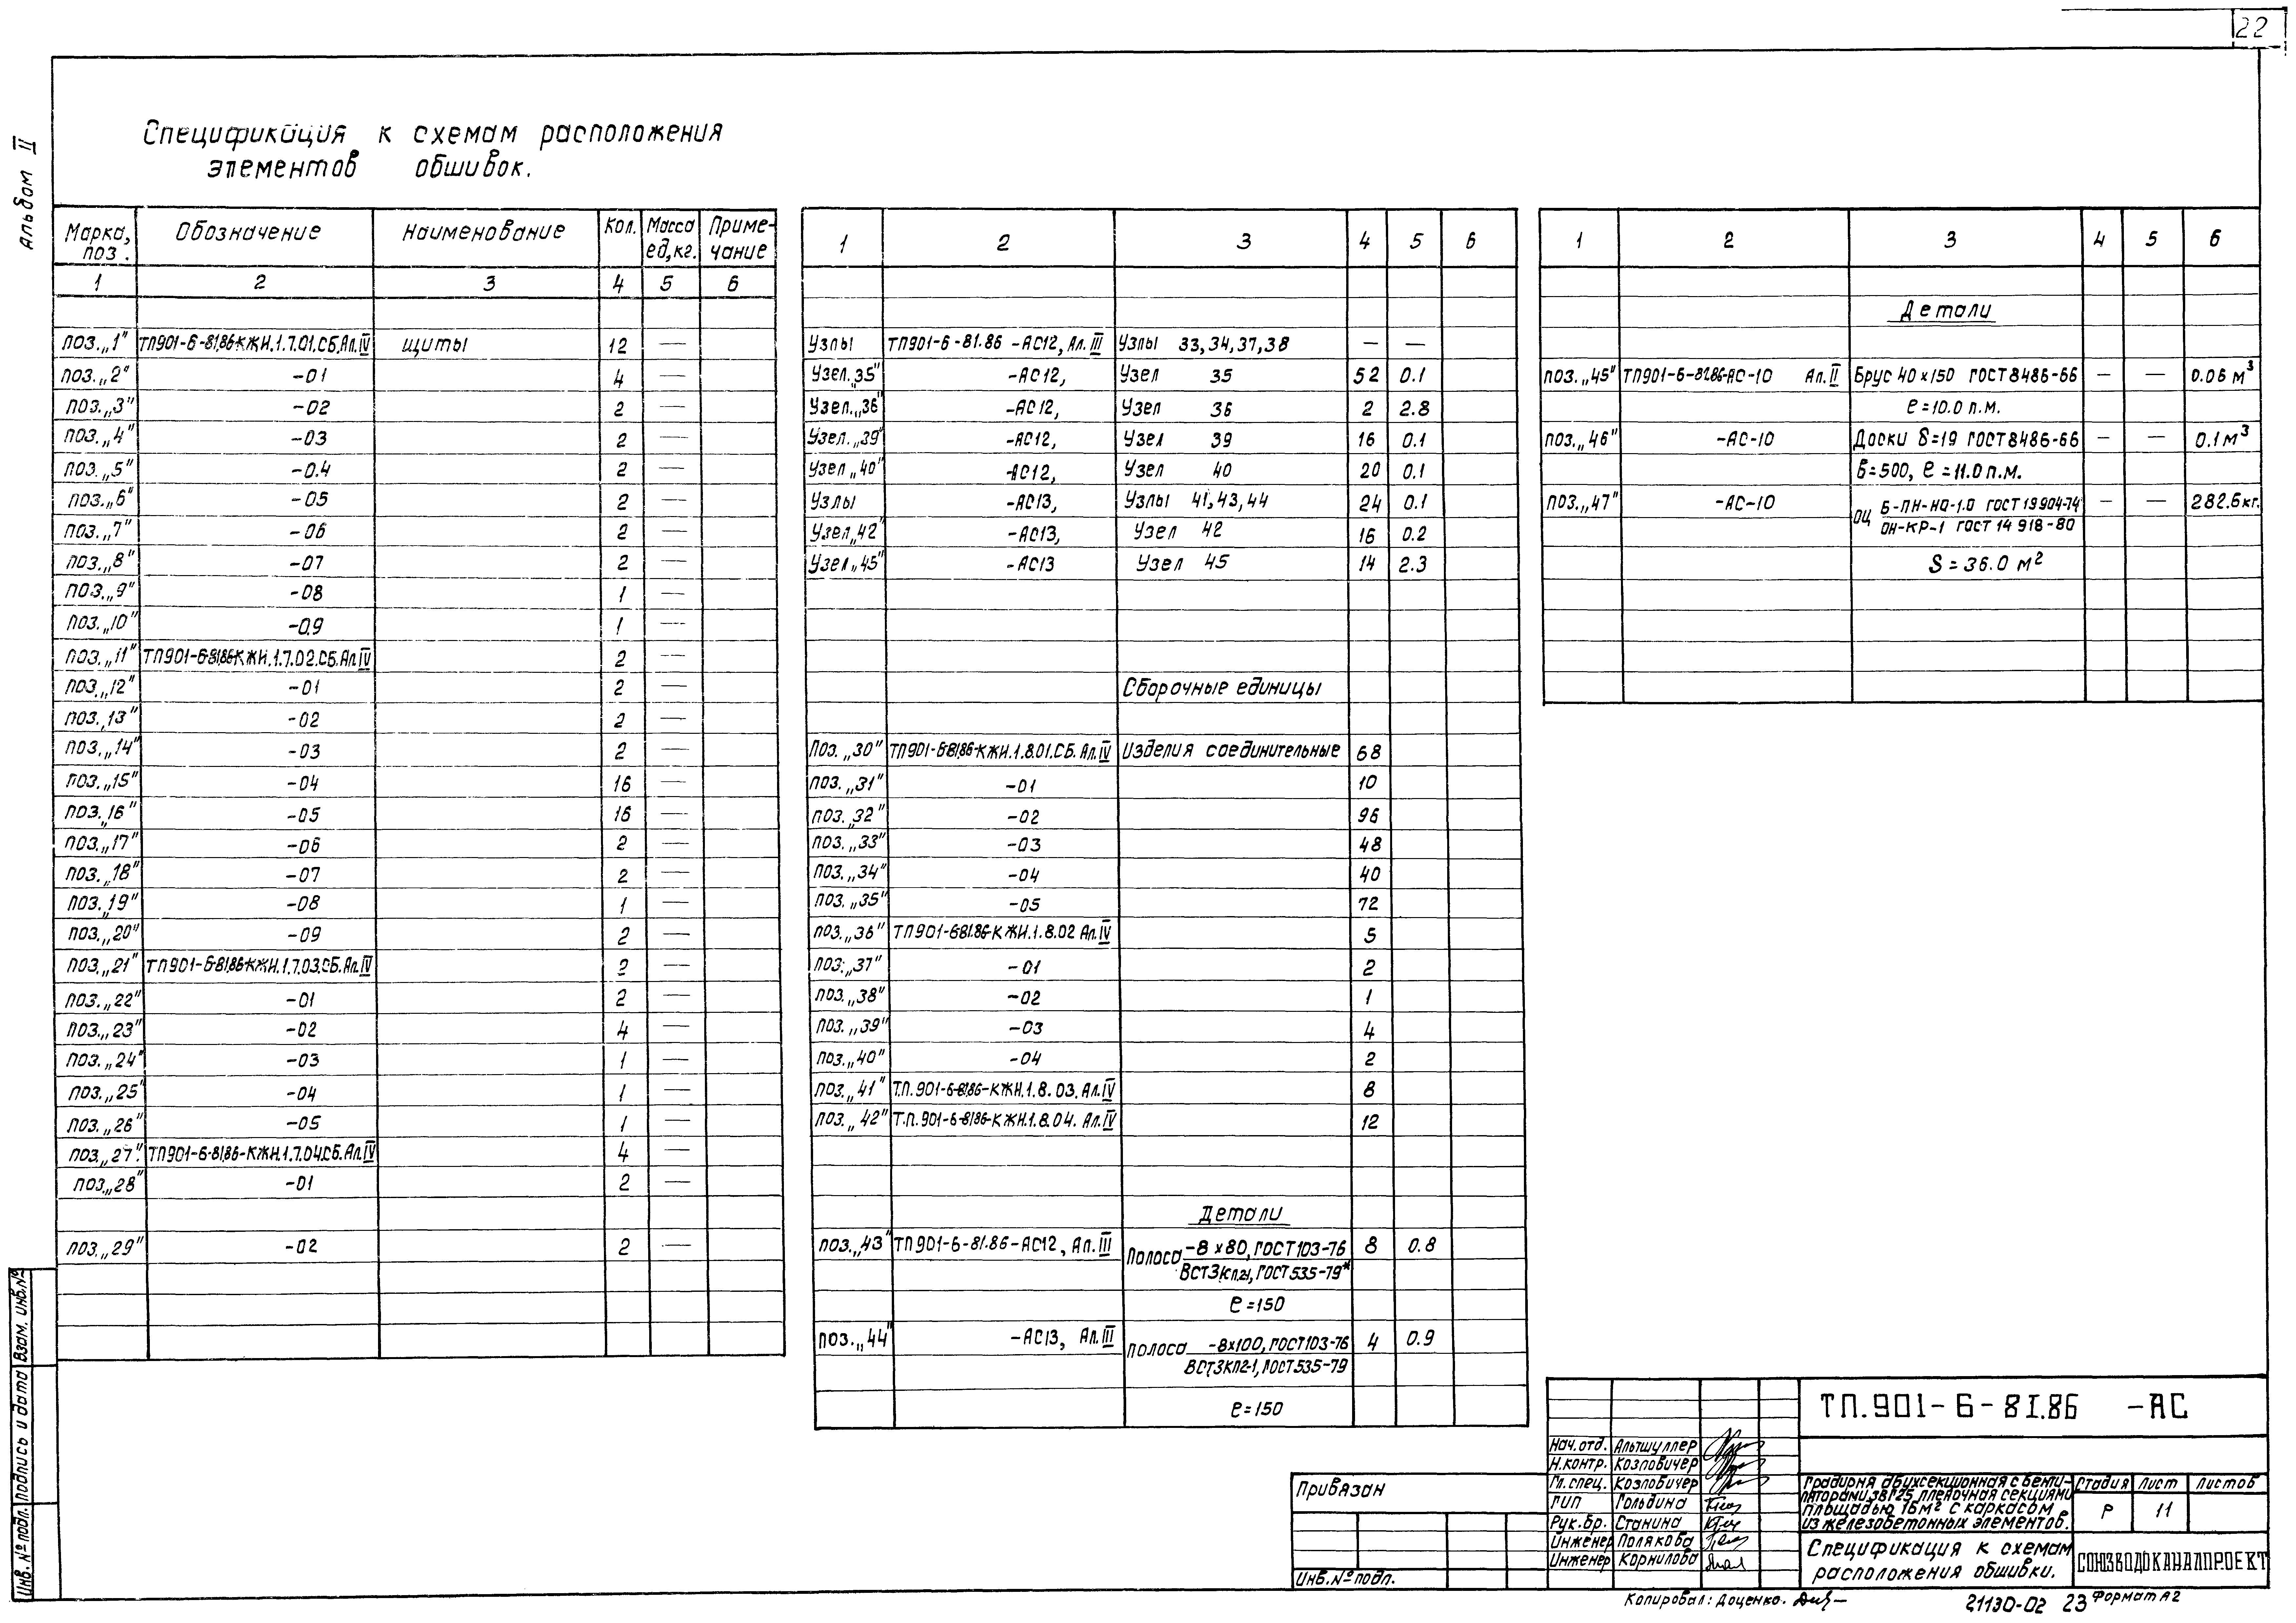 22
Альбом II
Спецификация к схемам расположения
элементов обшивок.
Марка, поз. Обозначение Наименование Кол. Масса ед,кг. Приме-чание
1 2 3 4 5 6
поз.„1" ТП901-6-81.86-КЖИ.1.7.01.СБ.Ал.IV щиты 12 —
поз.„2" -01 4 —
поз.„3" -02 2 —
поз.„4" -03 2 —
поз.„5" -0.4 2 —
поз.„6" -05 2 —
поз.„7" -06 2 —
поз.„8" -07 2 —
поз.„9" -08 1 —
поз.„10" -0.9 1 —
поз.„11" ТП901-6-81.86-КЖИ.1.7.02.СБ.Ал.IV 2 —
поз.„12" -01 2 —
поз.„13" -02 2 —
поз.„14" -03 2 —
поз.„15" -04 16 —
поз.„16" -05 16 —
поз.„17" -06 2 —
поз.„18" -07 2 —
поз.„19" -08 1 —
поз.„20" -09 2 —
поз.„21" ТП901-6-81.86-КЖИ.1.7.03.СБ.Ал.IV 2 —
поз.„22" -01 2 —
поз.„23" -02 4 —
поз.„24" -03 1 —
поз.„25" -04 1 —
поз.„26" -05 1 —
поз.„27" ТП901-6-81.86-КЖИ.1.7.04.СБ.Ал.IV 4 —
поз.„28" -01 2 —
поз.„29" -02 2 —
1 2 3 4 5 6
Узлы ТП901-6-81.86-АС12, Ал.III Узлы 33,34,37,38 — —
Узел.„35" -АС12, Узел 35 52 0.1
Узел.„36" -АС12, Узел 36 2 2.8
Узел.„39" -АС12, Узел 39 16 0.1
Узел„40" -АС12, Узел 40 20 0.1
Узлы -АС13, Узлы 41,43,44 24 0.1
Узел„42" -АС13, Узел 42 16 0.2
Узел„45" -АС13 Узел 45 14 2.3
Сборочные единицы
Поз.„30" ТП901-6-81.86-КЖИ.1.8.01.СБ.Ал.IV Изделия соединительные 68
поз.„31" -01 10
поз.„32" -02 96
поз.„33" -03 48
поз.„34" -04 40
поз.„35" -05 72
поз.„36" ТП901-6-81.86-КЖИ.1.8.02 Ал.IV 5
поз.„37" -01 2
поз.„38" -02 1
поз.„39" -03 4
поз.„40" -04 2
поз.„41" Т.П.901-6-81.86-КЖИ.1.8.03.Ал.IV 8
поз.„42" Т.П.901-6-81.86-КЖИ.1.8.04.Ал.IV 12
Детали
поз.„43" ТП901-6-81.86-АС12, Ал.III Полоса -8х80, ГОСТ103-76 8 0.8
ВСТ3кп.21, ГОСТ535-79*
ℓ=150
поз.„44" -АС13, Ал.III полоса -8х100, ГОСТ103-76 4 0.9
ВСТ3кп2-1, ГОСТ535-79
ℓ=150
1 2 3 4 5 6
Детали
поз.„45" ТП901-6-81.86-АС-10 Ал.II Брус 40х150 ГОСТ8486-66 — — 0.06 м³
ℓ=10.0 п.м.
поз.„46" -АС-10 Доски δ=19 ГОСТ8486-66 — — 0.1м³
в=500, ℓ=11.0 п.м.
поз.„47" -АС-10 ОЦ Б-ПН-НО-1.0 ГОСТ19904-74 — — 282.6кг.
ОН-КР-1 ГОСТ 14 918-80
S=36.0 м²
ТП.901-6-81.86 -АС
Нач.отд. Альтшуллер
Н.контр. Козловичер
Гл.спец. Козловичер
ГИП Гольдина
Рук.бр. Станина
Инженер Полякова
Инженер Корнилова
Привязан
Инв.№подл.
Градирня двухсекционная с венти-
ляторами 3ВГ25 пленочная секциями
площадью 16м² с каркасом
из железобетонных элементов.
Стадия Лист Листов
Р 11
Спецификация к схемам
расположения обшивки.
СОЮЗВОДОКАНАЛПРОЕКТ
Копировал: Доценко.
21130-02 23 Формат А2
Инв.№подл. Подпись и дата Взам. инв.№